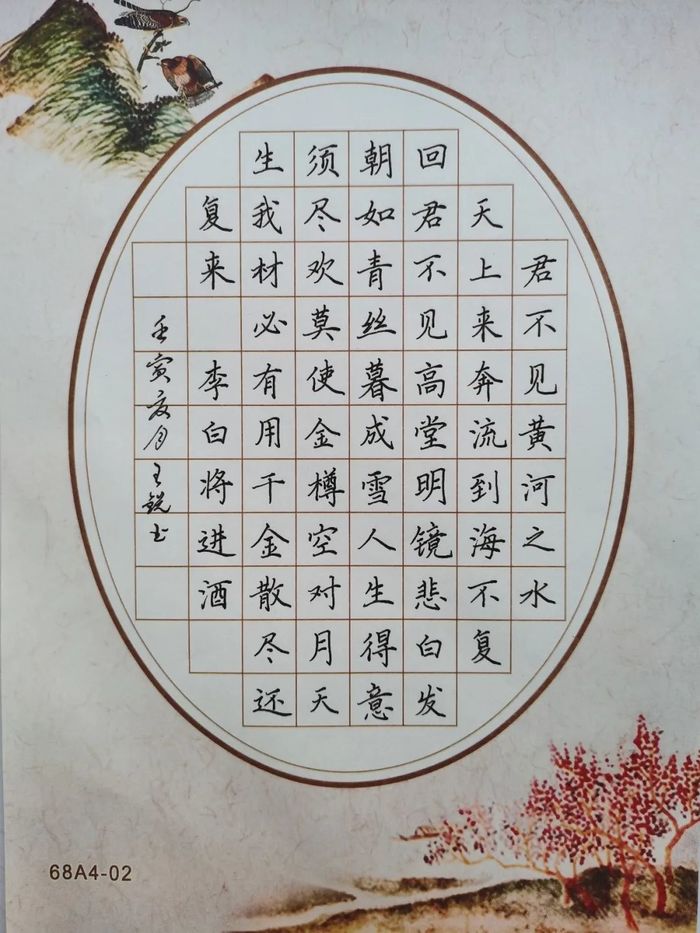 君不见黄河之水
天上来奔流到海不复
回君不见高堂明镜悲白发
朝如青丝暮成雪人生得意
须尽欢莫使金樽空对月天
生我材必有用千金散尽还
复来 李白将进酒
壬寅亥月王锐书
68A4-02